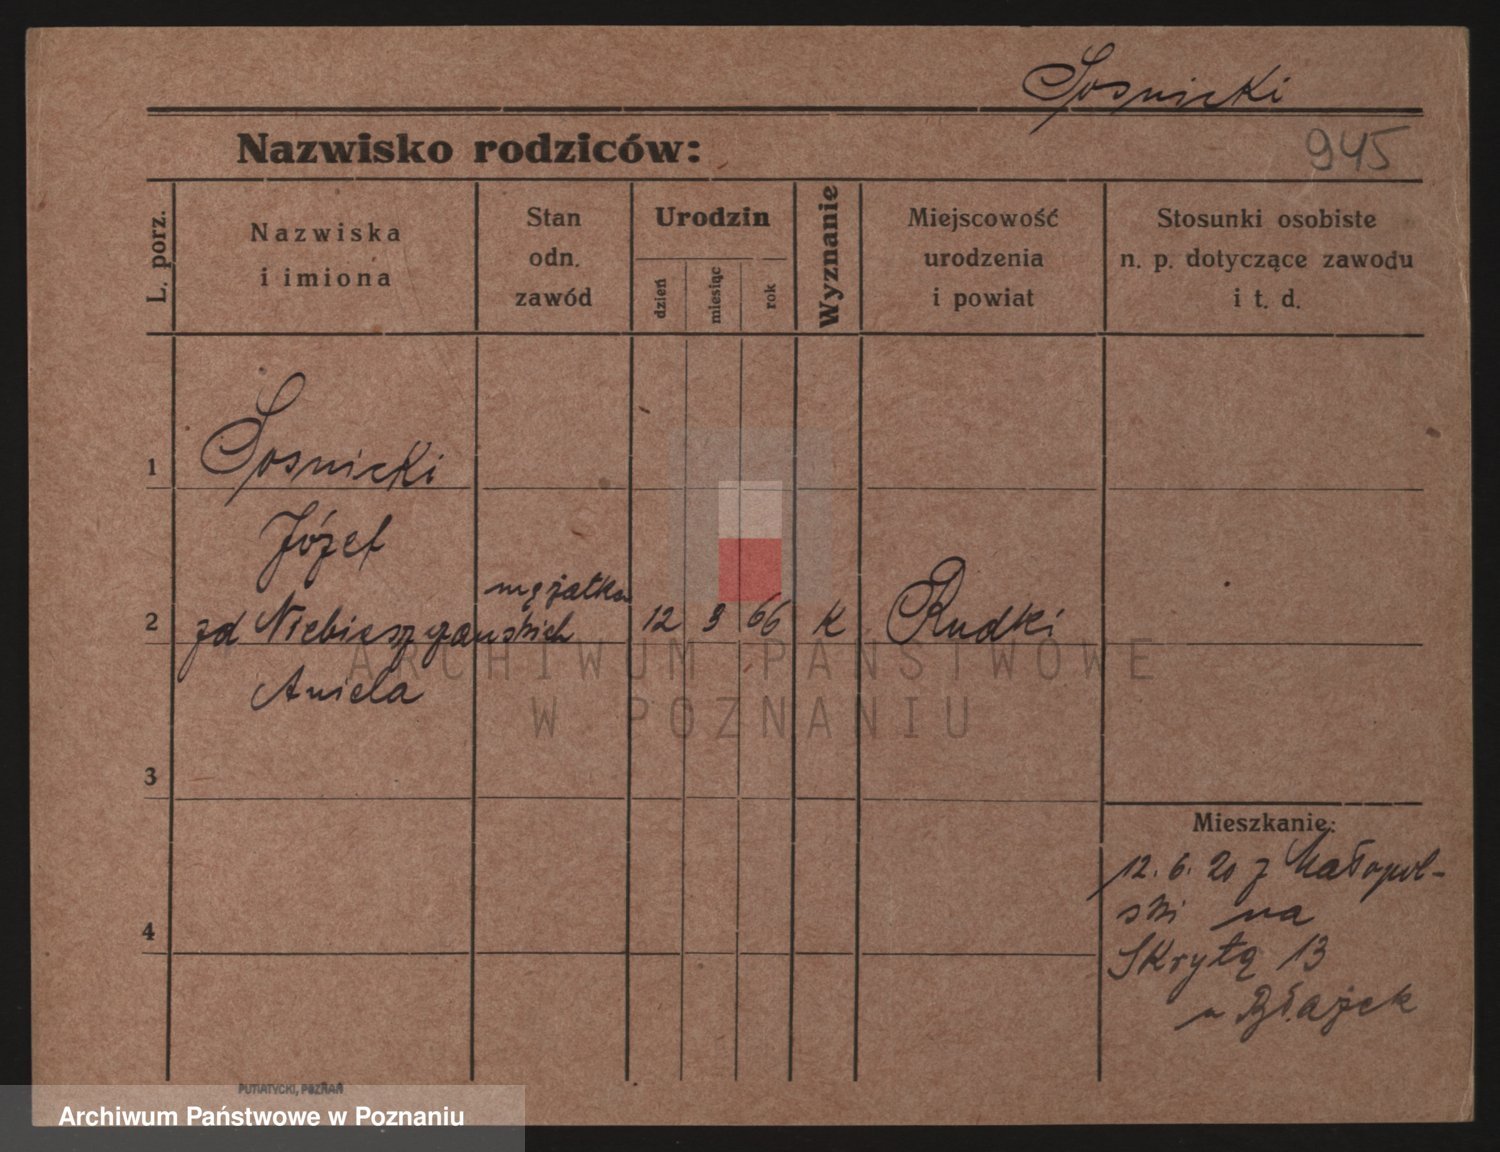 Sosnicki
Nazwisko rodziców:
945
L. porz.
Nazwiska
i imiona
Stan
odn.
zawód
Urodzin
dzień
miesiąc
rok
Wyznanie
Miejscowość
urodzenia
i powiat
Stosunki osobiste
n. p. dotyczące zawodu
i t. d.
1
Sosnicki
Józef
mężatka
2
zd Niebieszczańskich
12
3
66
K
Rudki
Aniela
ARCHIWUM PAŃSTWOWE
W POZNANIU
3
Mieszkanie:
12. 6. 20 z Małopol-
ski na
4
Skrytą 13
u Błażek
PUTIATYCKI, POZNAŃ
Archiwum Państwowe w Poznaniu